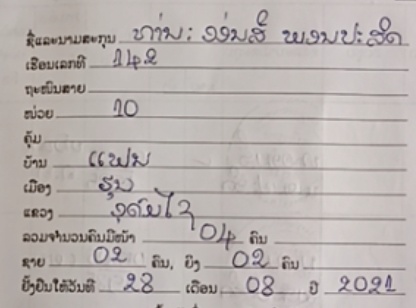 ຊື່ແລະນາມສະກຸນ ທ່ານ: ວຽນສີ ພົມປະສົດ
ເຮືອນເລກທີ 142
ຖະໜົນສາຍ
ໜ່ວຍ 10
ຄຸ້ມ
ບ້ານ ແຝນ
ເມືອງ ຮຸນ
ແຂວງ ອຸດົມໄຊ
ລວມຈຳນວນຄົນມີໜ້າ 04 ຄົນ
ຊາຍ 02 ຄົນ, ຍິງ 02 ຄົນ
ຢັ້ງຢືນໃຫ້ວັນທີ 28 ເດືອນ 08 ປີ 2021